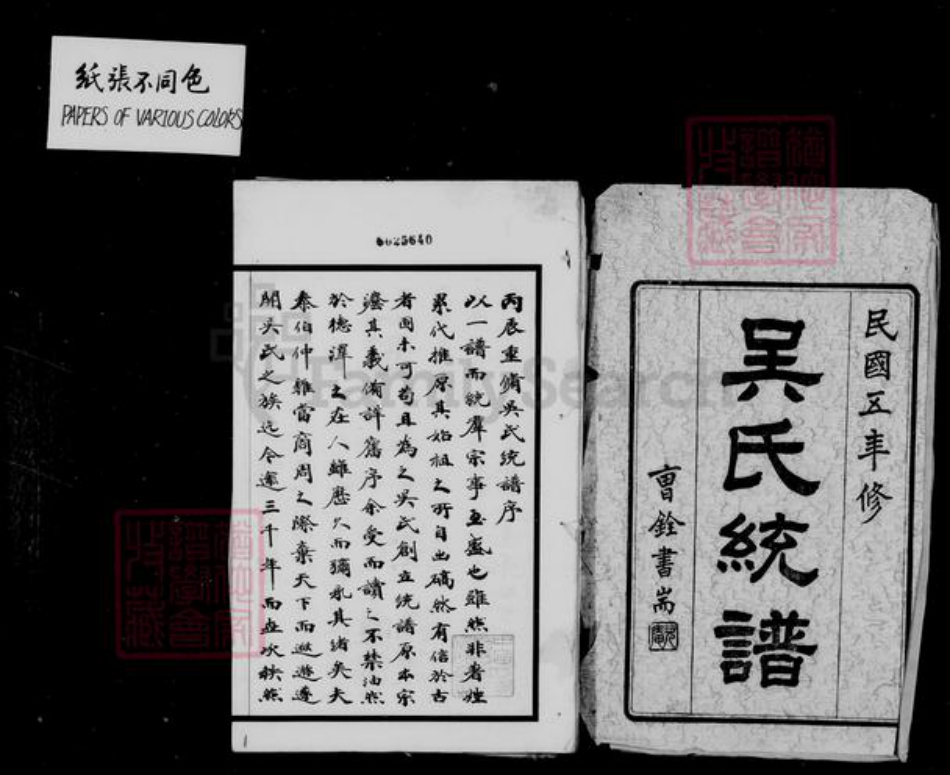 紙張不同色
PAPERS OF VARIOUS COLORS
民國五年修
吳氏統譜
曺銓書耑
6025640
丙辰重脩吳氏統譜序
以一譜而統羣宗事至盛也雖然非著姓
累代推原其始祖之所自出確然有信於古
者固未可苟且為之吳氏創立統譜原本宗
灋其義備詳舊序余受而讀之不禁油然
於德澤之在人雖歷久而彌永其緒矣夫
泰伯仲雍當商周之際棄天下而遜遯遂
開吳氏之族迄今逾三千年而世次秩然
FamilySearch